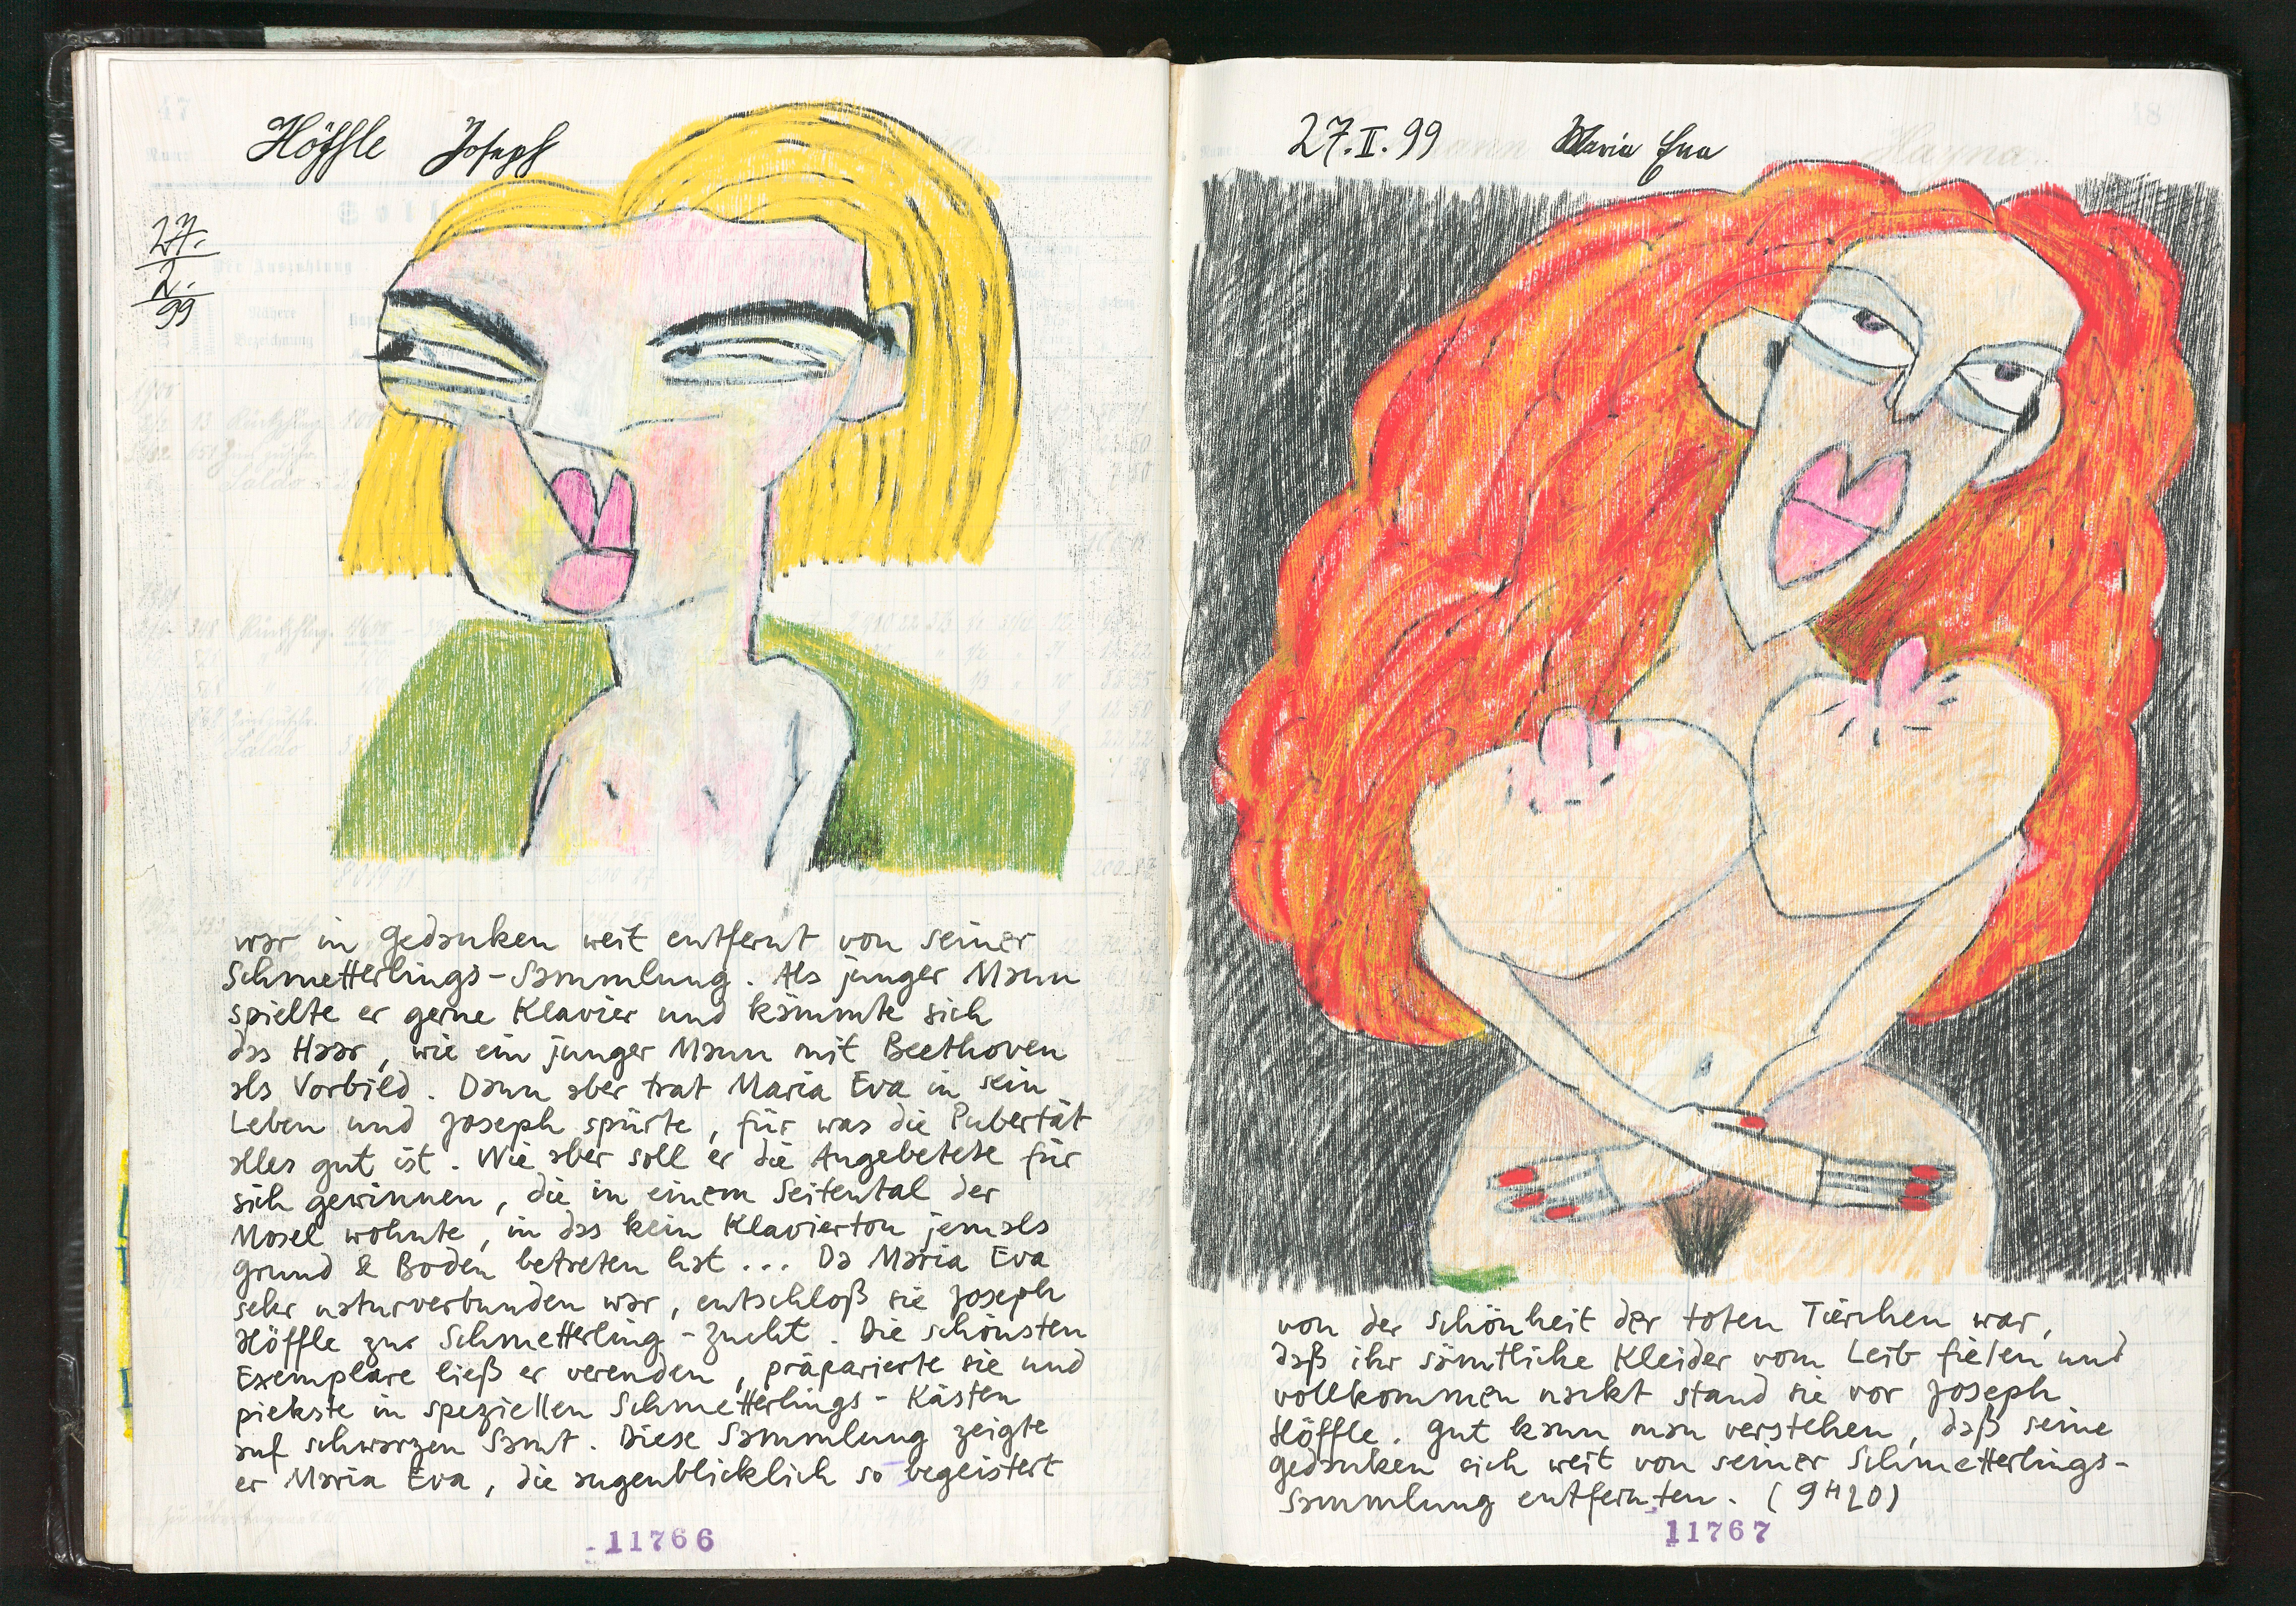 Höffle Joseph
27.
2.
99
war in Gedanken weit entfernt von seiner
Schmetterlings-Sammlung. Als junger Mann
spielte er gerne Klavier und kämmte sich
das Haar, wie ein junger Mann mit Beethoven
als Vorbild. Dann aber trat Maria Eva in sein
Leben und Joseph spürte, für was die Pubertät
alles gut ist. Wie aber soll er die Angebetete für
sich gewinnen, die in einem Seitental der
Mosel wohnte, in das kein Klavierton jemals
Grund & Boden betreten hat... Da Maria Eva
sehr naturverbunden war, entschloß sie Joseph
Höffle zur Schmetterling-Zucht. Die schönsten
Exemplare ließ er verenden, präparierte sie und
piekste in speziellen Schmetterlings-Kästen
auf schwarzen Samt. Diese Sammlung zeigte
er Maria Eva, die augenblicklich so begeistert
11766
27.II.99 Maria Eva
von der Schönheit der toten Tierchen war,
daß ihr sämtliche Kleider vom Leib fielen und
vollkommen nackt stand sie vor Joseph
Höffle. Gut kann man verstehen, daß seine
Gedanken sich weit von seiner Schmetterlings-
Sammlung entfernten. (9H20)
11767